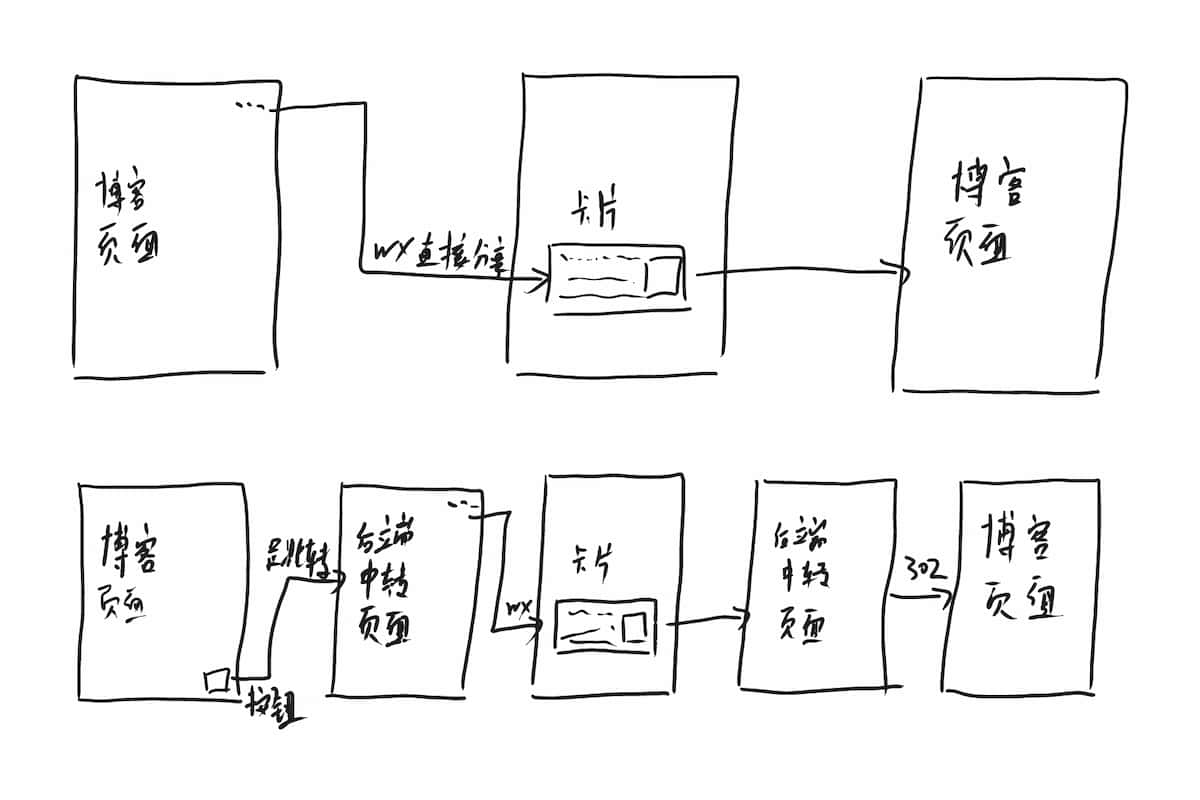 博客
页面
WX直接分享
卡片
博客
页面
博客
页面
按钮
跳转
后端
中转
页面
WX
卡片
后端
中转
页面
302
博客
页面